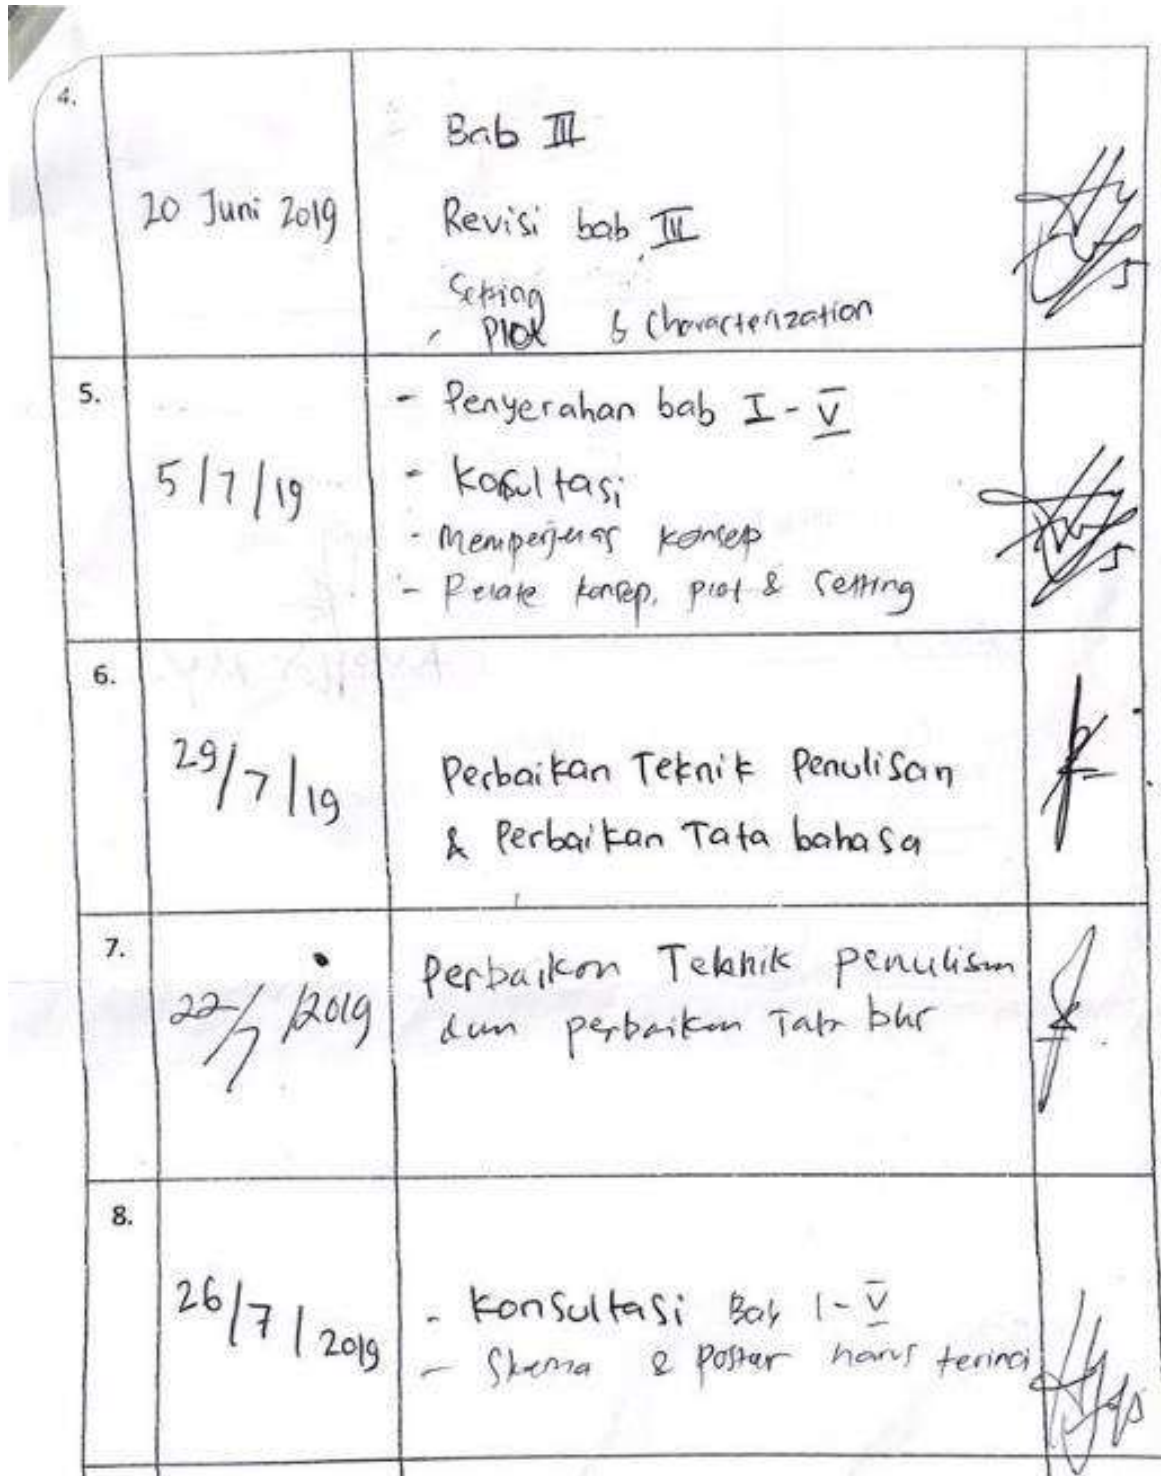 4.
20 Juni 2019
Bab III
Revisi bab III
Setting
Plot & Characterization
5.
5/7/19
- Penyerahan bab I - V
- Kosultasi
- Memperjelas konsep
- Relate konsep, plot & setting
6.
29/7/19
Perbaikan Teknik Penulisan
& Perbaikan Tata bahasa
7.
22/7/2019
Perbaikan Teknik penulisan
dan perbaikan Tata bhs
8.
26/7/2019
- Konsultasi Bab I - V
- Skema & Poster harus terinci